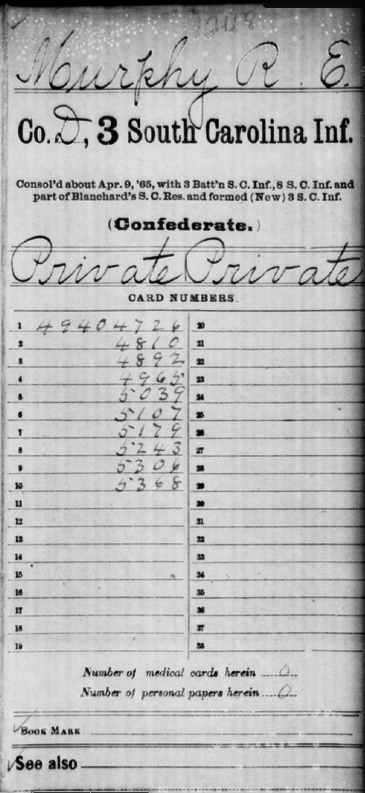 Murphy R. E.
Co. D, 3 South Carolina Inf.
Consol'd about Apr. 9, '65, with 3 Batt'n S. C. Inf., 8 S. C. Inf. and
part of Blanchard's S. C. Res. and formed (New) 3 S. C. Inf.
(Confederate.)
Private Private
CARD NUMBERS.
1 49404726 20
2 4810 21
3 4892 22
4 4965 23
5 5039 24
6 5107 25
7 5179 26
8 5243 27
9 5306 28
10 5368 29
11 30
12 31
13 32
14 33
15 34
16 35
17 36
18 37
19 38
Number of medical cards herein 0
Number of personal papers herein 0
BOOK MARK
See also